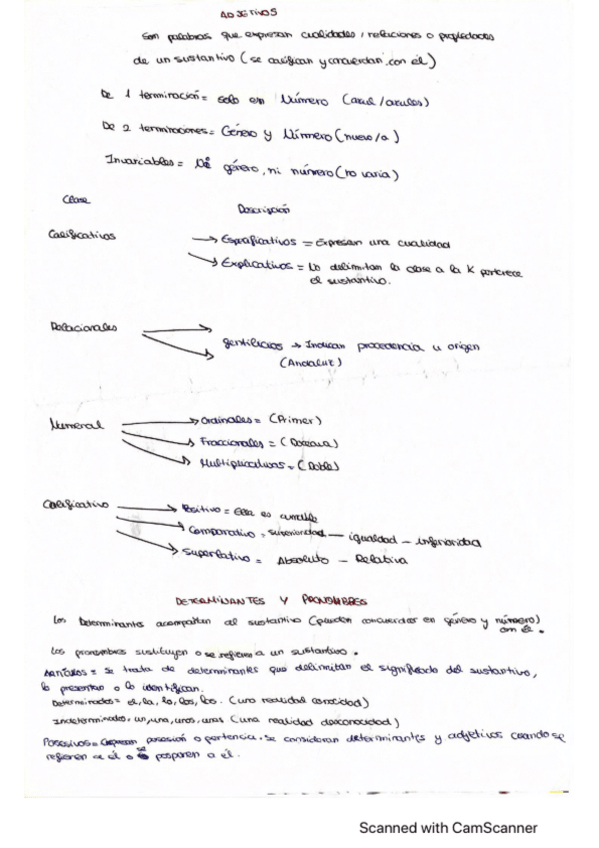 ADJETIVOS
Son palabras que expresan cualidades, relaciones o propiedades
de un sustantivo (se califican y concuerdan con él)
De 1 terminación = solo en Número (azul/azules)
De 2 terminaciones = Género y Número (nuevo/a)
Invariables = Ni género, ni número (no varia)
Clase Descripción
Calificativos → Especificativos = Expresan una cualidad
→ Explicativos = No delimitan la clase a la K pertenece
el sustantivo.
Relacionales →
→ gentilicios → Indican procedencia u origen
(Andaluz)
Numeral → Ordinales = (Primer)
→ Fraccionales = (Doceava)
→ Multiplicativos = (Doble)
Calificativo → Positivo = Ella es amable
→ Comparativo = superioridad — igualdad — inferioridad
→ Superlativo = Absoluto — Relativa
DETERMINANTES Y PRONOMBRES
Los Determinantes acompañan al sustantivo (pueden concuerdan en género y número)
con él.
Los pronombres sustituyen o se refieren a un sustantivo.
ARTÍCULOS = Se trata de determinantes que delimitan el significado del sustantivo,
lo presentan o lo identifican.
Determinados = el, la, lo, los, las. (una realidad conocida)
Indeterminados = un, una, unos, unas (una realidad desconocida)
Posesivos = Expresan posesión o pertencia. Se consideran determinantes y adjetivos cuando se
refieren a él o se posponen a él.
Scanned with CamScanner